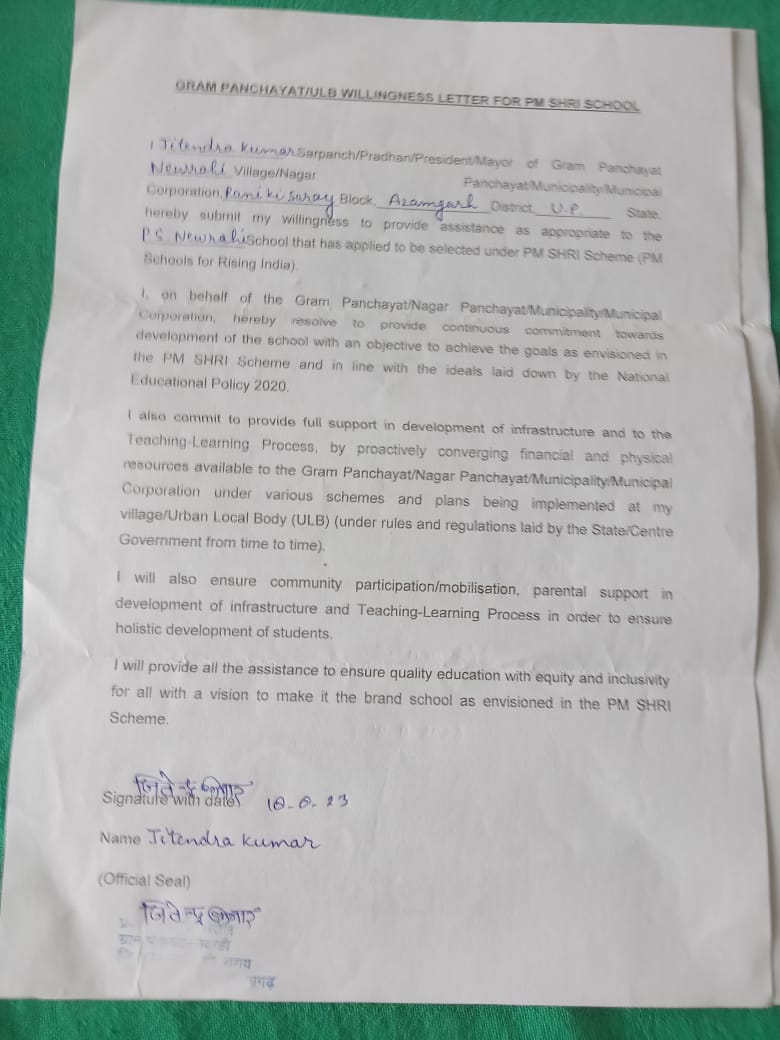 GRAM PANCHAYAT/ULB WILLINGNESS LETTER FOR PM SHRI SCHOOL
I Jitendra Kumar Sarpanch/Pradhan/President/Mayor of Gram Panchayat
Newrahi Village/Nagar Panchayat/Municipality/Municipal
Corporation, Rani ki Saray Block, Azamgarh District, U.P State,
hereby submit my willingness to provide assistance as appropriate to the
P.S. Newrahi School that has applied to be selected under PM SHRI Scheme (PM
Schools for Rising India).
I, on behalf of the Gram, Panchayat/Nagar Panchayat/Municipality/Municipal
Corporation, hereby resolve to provide continuous commitment towards
development of the school with an objective to achieve the goals as envisioned in
the PM SHRI Scheme and in line with the ideals laid down by the National
Educational Policy 2020.
I also commit to provide full support in development of infrastructure and to the
Teaching-Learning Process, by proactively converging financial and physical
resources available to the Gram Panchayat/Nagar Panchayat/Municipality/Municipal
Corporation under various schemes and plans being implemented at my
village/Urban Local Body (ULB) (under rules and regulations laid by the State/Centre
Government from time to time).
I will also ensure community participation/mobilisation, parental support in
development of infrastructure and Teaching-Learning Process in order to ensure
holistic development of students.
I will provide all the assistance to ensure quality education with equity and inclusivity
for all with a vision to make it the brand school as envisioned in the PM SHRI
Scheme.
जितेन्द्र कुमार
Signature with date
Name Jitendra Kumar
(Official Seal)
जितेन्द्र कुमार
ग्राम